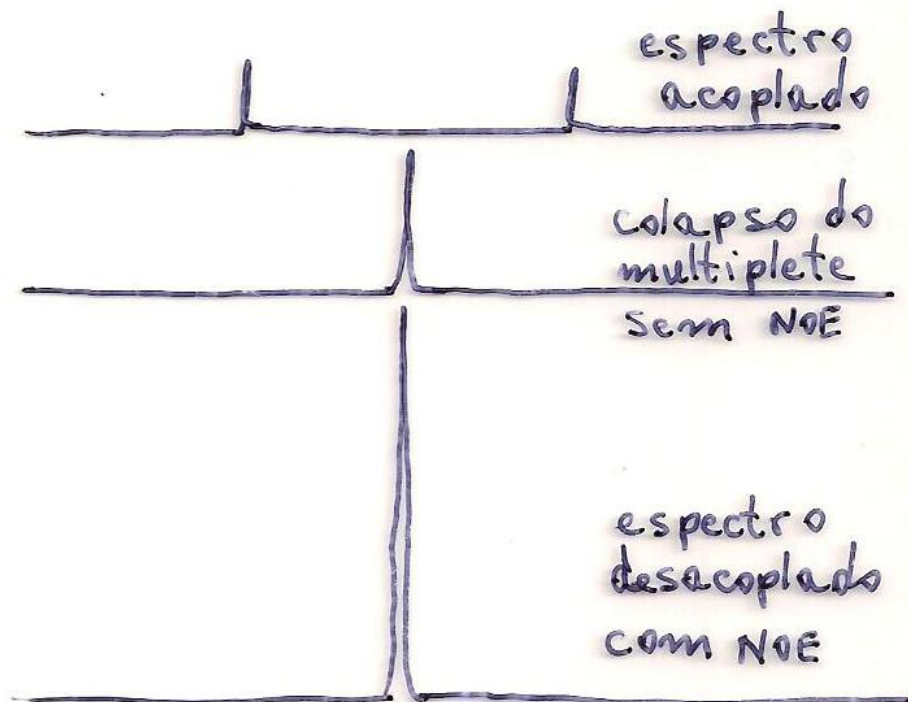 espectro
acoplado
colapso do
multiplete
sem NOE
espectro
desacoplado
com NOE